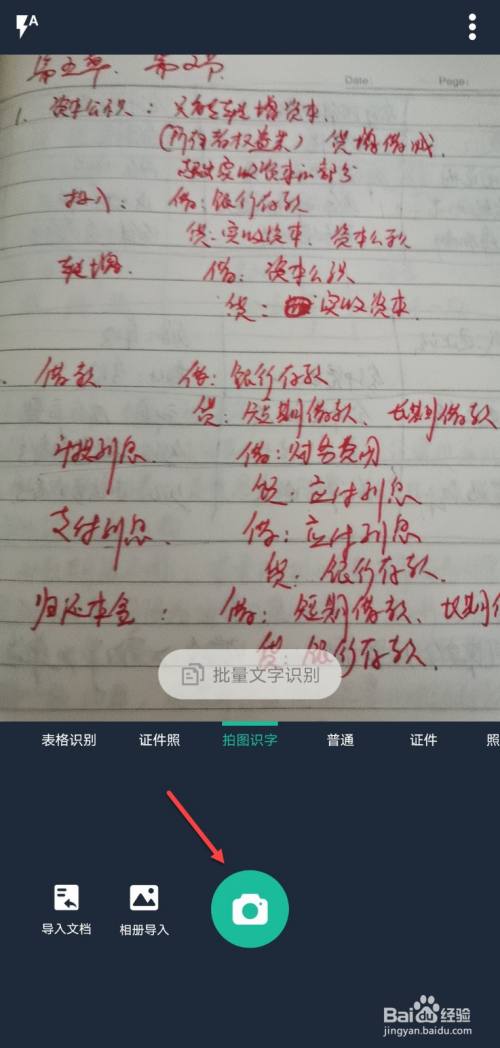 A
第五章. 第2节
Date: Page:
1. 资本公积: 只能转增资本.
(所有者权益类) 贷增借减.
超出实收资本的部分
投入: 借: 银行存款
贷: 实收资本、资本公积
转增. 借: 资本公积
贷: 实收资本.
借款 借: 银行存款
贷: 短期借款、长期借款
计提利息. 借: 财务费用
贷: 应付利息
支付利息. 借: 应付利息
贷: 银行存款.
归还本金: 借: 短期借款、长期借
贷: 银行存款.
批量文字识别
表格识别 证件照 拍图识字 普通 证件 照
导入文档 相册导入
Baidu经验
jingyan.baidu.com